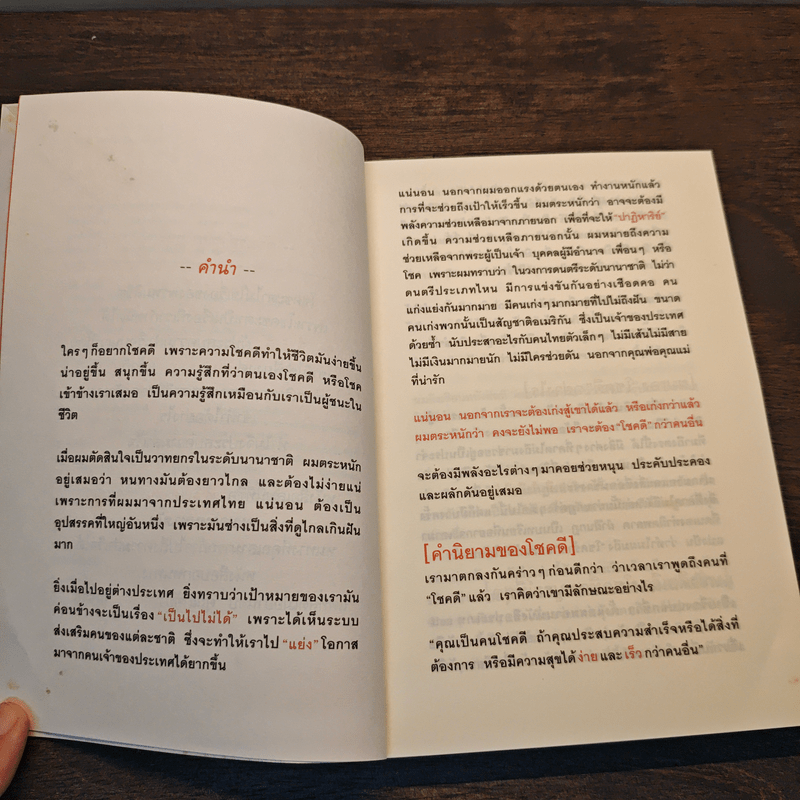 -- คำนำ --
ใครๆก็อยากโชคดี เพราะความโชคดีทำให้ชีวิตมันง่ายขึ้น
น่าอยู่ขึ้น สนุกขึ้น ความรู้สึกที่ว่าตนเองโชคดี หรือโชค
เข้าข้างเราเสมอ เป็นความรู้สึกเหมือนกับเราเป็นผู้ชนะใน
ชีวิต
เมื่อผมตัดสินใจเป็นวาทยกรในระดับนานาชาติ ผมตระหนัก
อยู่เสมอว่า หนทางมันต้องยาวไกล และต้องไม่ง่ายแน่
เพราะการที่ผมมาจากประเทศไทย แน่นอน ต้องเป็น
อุปสรรคที่ใหญ่อันหนึ่ง เพราะมันช่างเป็นสิ่งที่ดูไกลเกินฝัน
มาก
ยิ่งเมื่อไปอยู่ต่างประเทศ ยิ่งทราบว่าเป้าหมายของเรามัน
ค่อนข้างจะเป็นเรื่อง "เป็นไปไม่ได้" เพราะได้เห็นระบบ
ส่งเสริมคนของแต่ละชาติ ซึ่งจะทำให้เราไป "แย่ง" โอกาส
มาจากคนเจ้าของประเทศได้ยากขึ้น
แน่นอน นอกจากผมออกแรงด้วยตนเอง ทำงานหนักแล้ว
การที่จะช่วยถึงเป้าให้เร็วขึ้น ผมตระหนักว่า อาจจะต้องมี
พลังความช่วยเหลือมาจากภายนอก เพื่อที่จะให้ "ปาฏิหาริย์"
เกิดขึ้น ความช่วยเหลือภายนอกนั้น ผมหมายถึงความ
ช่วยเหลือจากพระผู้เป็นเจ้า บุคคลผู้มีอำนาจ เพื่อนๆ หรือ
โชค เพราะผมทราบว่า ในวงการดนตรีระดับนานาชาติ ไม่ว่า
ดนตรีประเภทไหน มีการแข่งขันกันอย่างเชือดคอ คน
เก่งแย่งกันมากมาย มีคนเก่งๆมากมายที่ไปไม่ถึงฝัน ขนาด
คนเก่งพวกนั้นเป็นสัญชาติอเมริกัน ซึ่งเป็นเจ้าของประเทศ
ด้วยซ้ำ นับประสาอะไรกับคนไทยตัวเล็กๆ ไม่มีเส้นไม่มีสาย
ไม่มีเงินมากมายนัก ไม่มีใครช่วยดัน นอกจากคุณพ่อคุณแม่
ที่น่ารัก
แน่นอน นอกจากเราจะต้องเก่งสู้เขาได้แล้ว หรือเก่งกว่าแล้ว
ผมตระหนักว่า คงจะยังไม่พอ เราจะต้อง "โชคดี" กว่าคนอื่น
จะต้องมีพลังอะไรต่างๆมาคอยช่วยหนุน ประคับประคอง
และผลักดันอยู่เสมอ
[คำนิยามของโชคดี]
เรามาตกลงกันคร่าวๆก่อนดีกว่า ว่าเวลาเราพูดถึงคนที่
"โชคดี" แล้ว เราคิดว่าเขามีลักษณะอย่างไร
"คุณเป็นคนโชคดี ถ้าคุณประสบความสำเร็จหรือได้สิ่งที่
ต้องการ หรือมีความสุขได้ง่ายและเร็วกว่าคนอื่น"